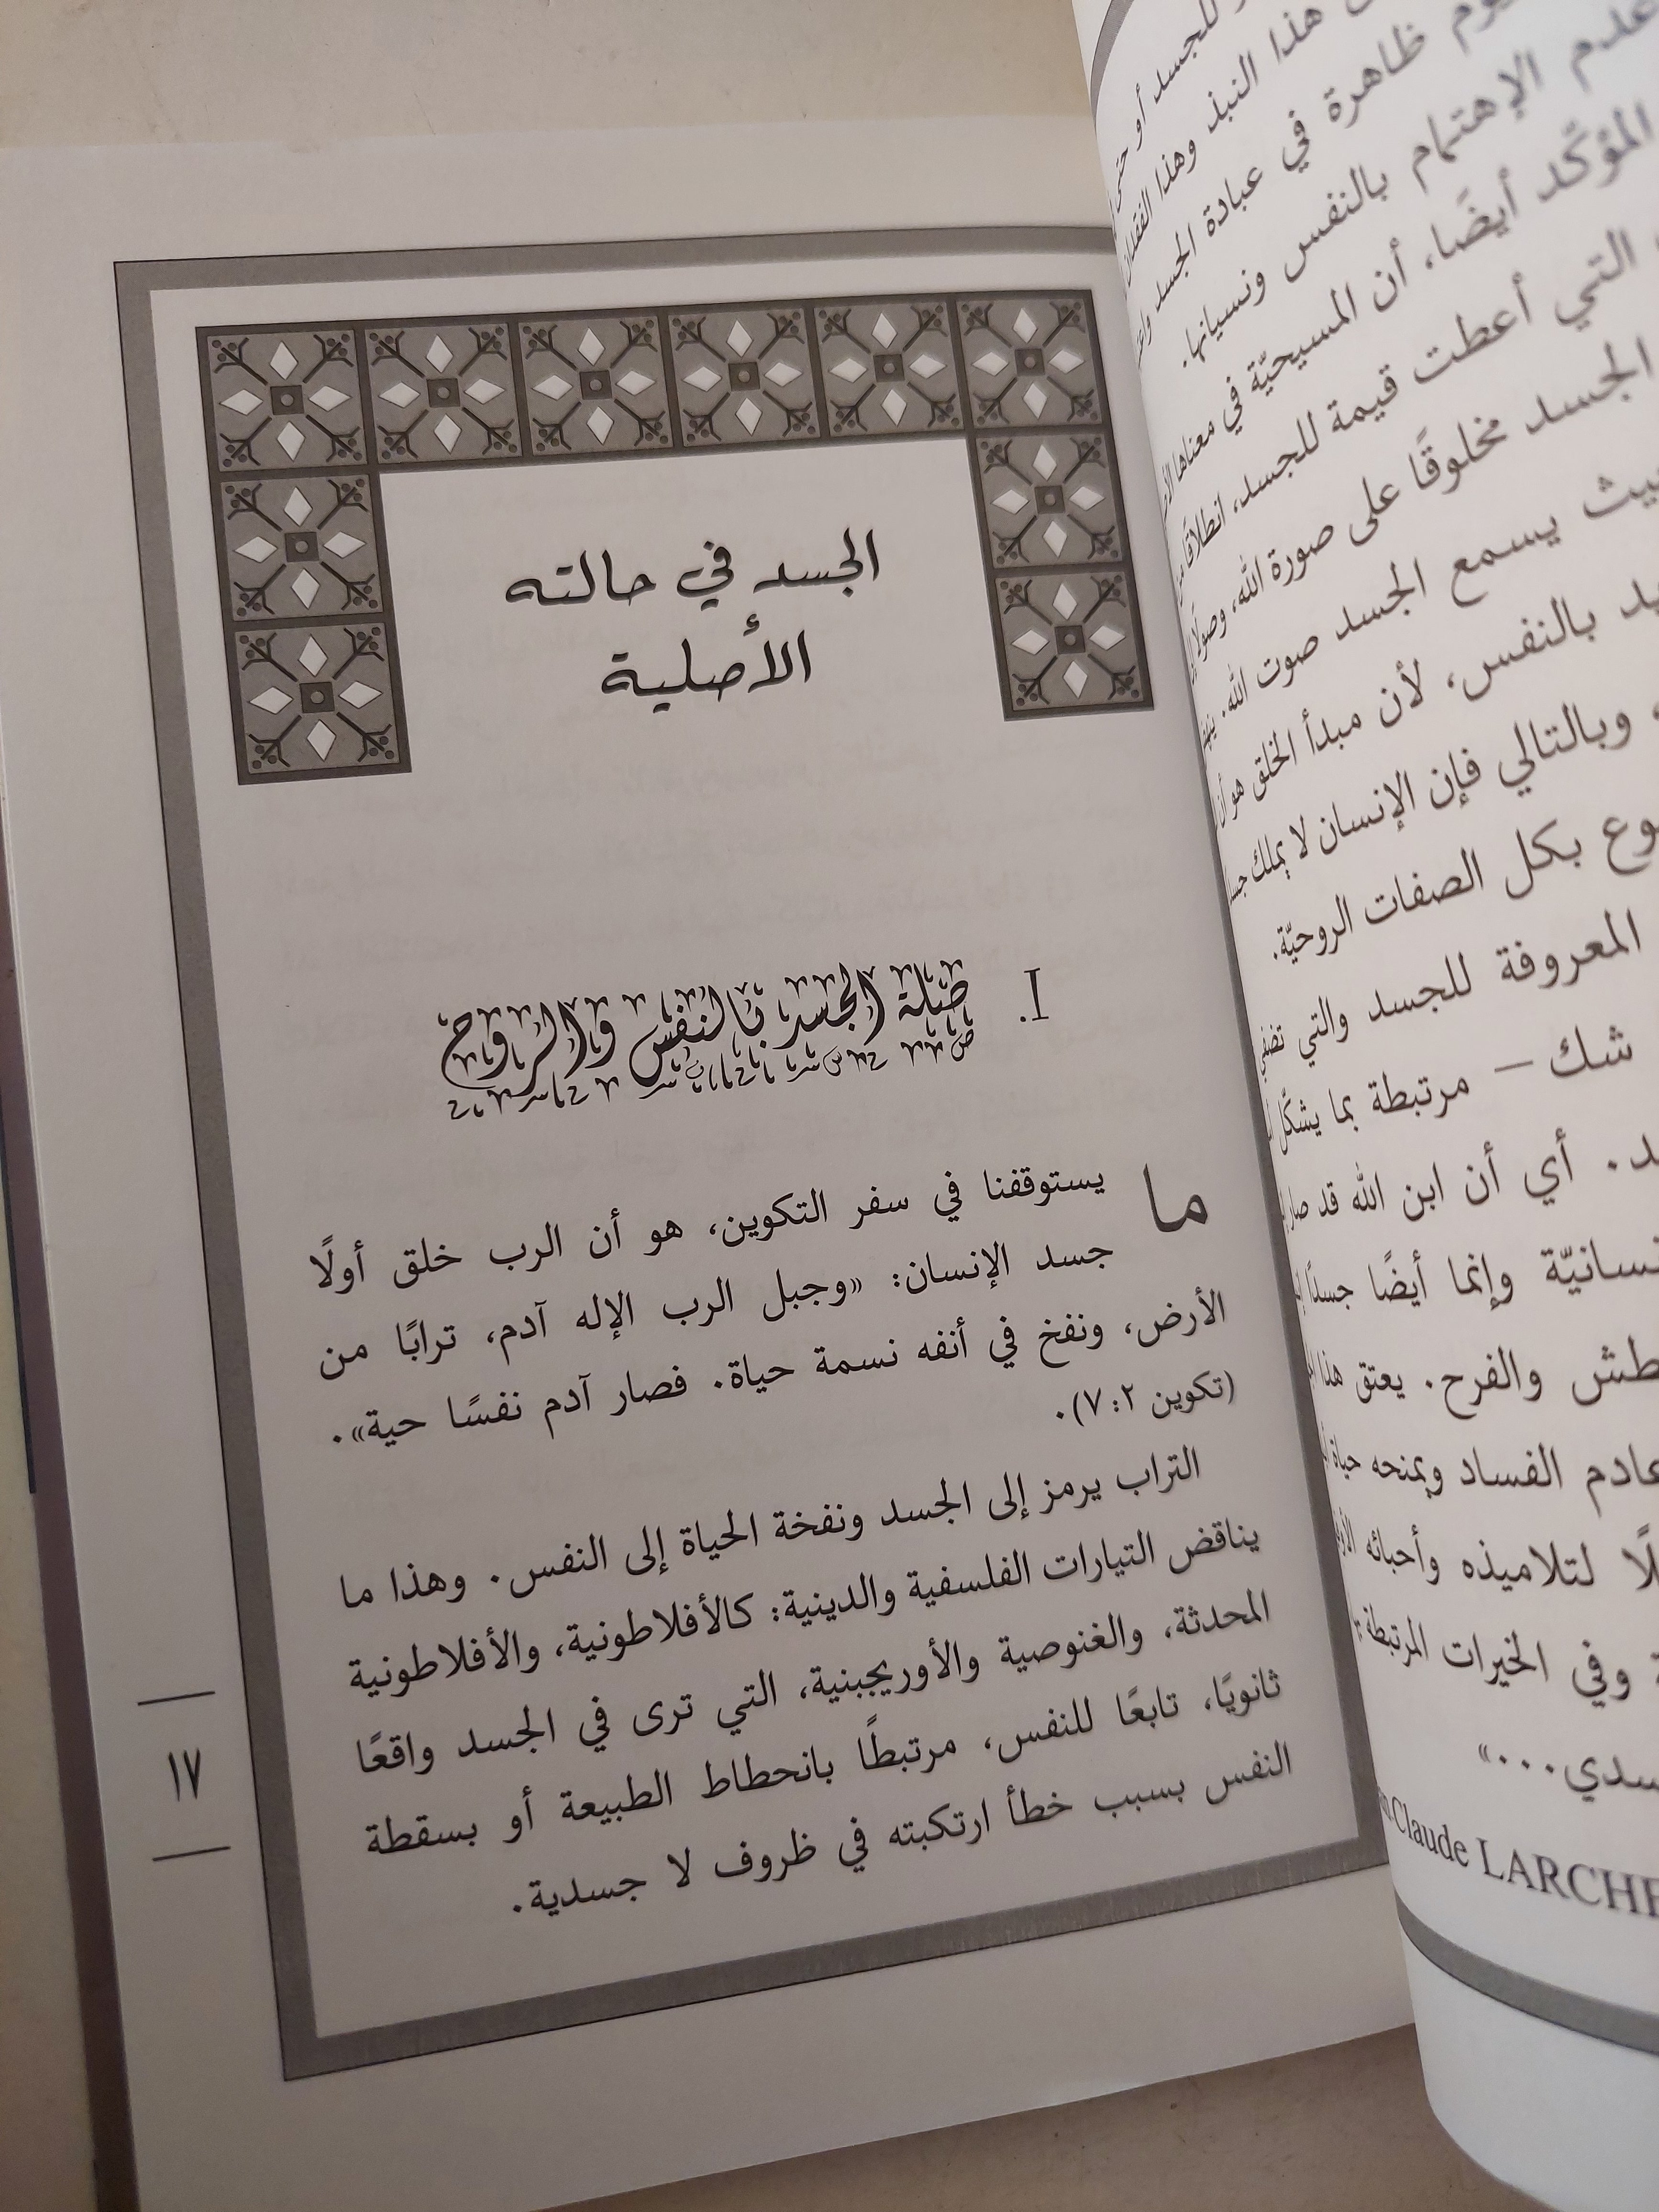 للجسد أو حتى
هذا النبذ وهذا الفقدان
ظاهرة في عبادة الجسد
عدم الإهتمام بالنفس ونسيانها.
المؤكد أيضًا، أن المسيحيّة في معناها
التي أعطت قيمة للجسد، انطلاقًا من
الجسد مخلوقًا على صورة الله، وصولًا
يسمع الجسد صوت الله.
بالنفس، لأن مبدأ الخلق هو أن
وبالتالي فإن الإنسان لا يملك
بكل الصفات الروحيّة.
المعروفة للجسد والتي
شك – مرتبطة بما يشكّل
أي أن ابن الله قد صار
وإنما أيضًا جسدًا
والفرح. يعتق هذا
عادم الفساد ويمنحه حياة
لتلاميذه وأحبائه
وفي الخيرات المرتبطة
...»
Claude LARCHE
الجسد في حالته
الأصلية
I. صلة الجسد بالنفس والروح
ما يستوقفنا في سفر التكوين، هو أن الرب خلق أولًا
جسد الإنسان: «وجبل الرب الإله آدم، ترابًا من
الأرض، ونفخ في أنفه نسمة حياة. فصار آدم نفسًا حية».
(تكوين ٢: ٧).
التراب يرمز إلى الجسد ونفخة الحياة إلى النفس. وهذا ما
يناقض التيارات الفلسفية والدينية: كالأفلاطونية، والأفلاطونية
المحدثة، والغنوصية والأوريجينية، التي ترى في الجسد واقعًا
ثانويًا، تابعًا للنفس، مرتبطًا بانحطاط الطبيعة أو بسقطة
النفس بسبب خطأ ارتكبته في ظروف لا جسدية.
١٧